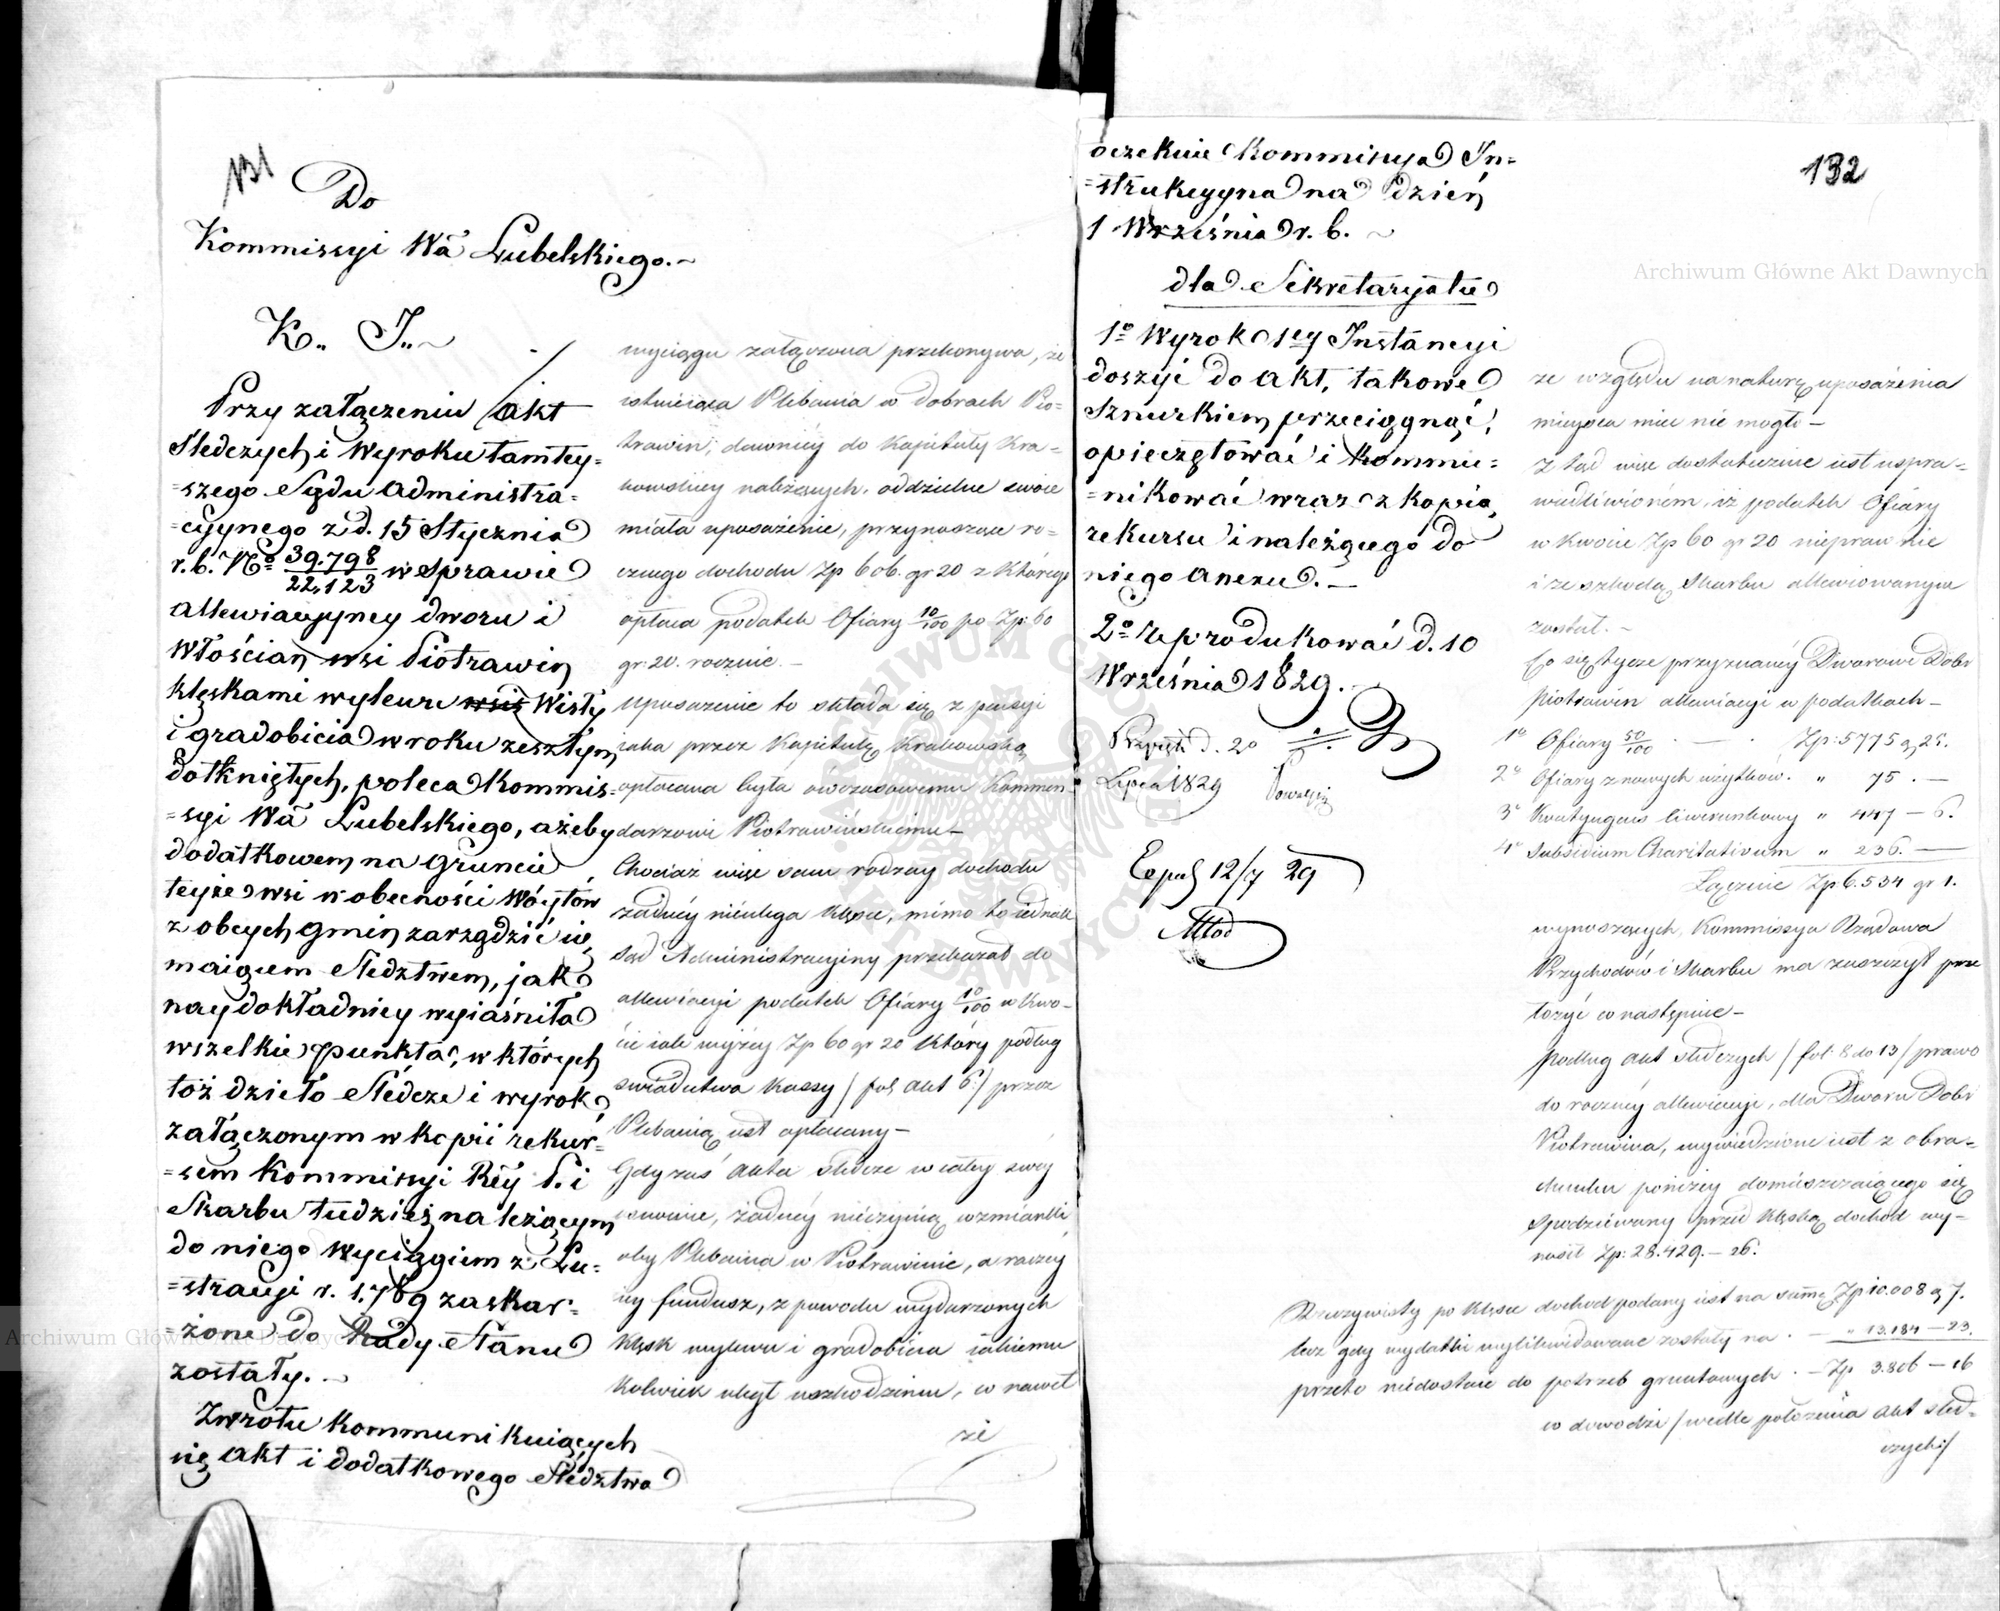 131
Do
Kommissyi Wa Lubelskiego.~
K.. J..~
Przy załączeniu akt
śledczych i wyroku tamtey=
=szego Sądu administra=
=cyynego z d. 15 Stycznia
r. b. No 39.798/22,123 w sprawie
allewiacyyney dworu i
Włościan wsi Piotrawin
klęskami wylewu wsis Wisły
i gradobicia w roku zeszłym
dotkniętych, poleca Kommis=
=syi Wa Lubelskiego, ażeby
dodatkowem na gruncie
teyże wsi w obecności Wóytów
z obcych gmin zarządzić się
maiącem śledztwem, jak
naydokładniey wyiaśniła
wszelkie punkta, w których
toż dzieło śledcze i wyrok,
załączonym w kopii rekur=
=sem Kommissyi Rey P. i
Skarbu tudzież należącym
do niego wyciągiem z Lu=
=stracyi r. 1.789 zaskar=
=żone do Rady Stanu
zostały.~
Zwrotu kommunikuiących
się akt i dodatkowego śledztwa
wyciągu załączona przekonywa, że
istnieiąca Plebania w dobrach Pio-
trawin, dawniey do Kapituły Kra-
kowskiey należących, oddzielne swoie
miała uposażenie, przynoszące ro-
cznego dochodu Zp 606. gr 20 z którego
opłaca podatek Ofiary 10/100 po Zp: 60
gr: 20. rocznie.-
Uposażenie to składa się z pensyi
iaka przez Kapitułę Krakowską
opłacana była ówczasowemu Kommen-
darzowi Piotrawińskiemu-
Chociaż więc sam rodzay dochodu
żadney nieulega klęsce, mimo to iednak
Sąd Administracyiny przekazał do
allewiacyi podatek Ofiary 10/100 w kwo-
cie iak wyżey Zp 60 gr 20 który podług
świadectwa Kassy / fol. akt 6:/ przez
Plebanią iest opłacany-
Gdy zaś akta śledcze w całey swey
osnowie, żadney nieczynią wzmianki
aby Plebania w Piotrawinie, a raczey
iey fundusz, z powodu wydarzonych
klęsk wylewu i gradobicia iakiemu
kolwiek uległ uszkodzeniu, co nawet
że
132
oczekuie Kommissya In=
=strukcyyna na dzień
1 Września r. b. ~
dla Sekretaryatu
1o Wyrok 1ey Instancyi
doszyć do akt, takowe
sznurkiem przeciągnąć,
opieczętować i kommu=
=nikować wraz z kopią
rekursu i należącego do
niego anexu. -
2o reprodukować d. 10
Września 1829.
Przyięto d. 20
Lipca 1829
Exped 12/7 29
ze względu na naturę uposażenia
mieysca mieć nie mogło-
Z tąd więc dostatecznie iest uspra-
wiedliwioném, iż podatek Ofiary
w kwocie Zp 60 gr 20 nieprawnie
i ze szkodą Skarbu allewiowanym
został.-
Co się tycze przyznaney Dworowi Dóbr
Piotrawin allewiacyi w podatkach-
1o Ofiary 50/100 . — . Zp: 5775 g 25.
2o Ofiary z nowych użytków. " 75 . —
3o Kontyngens liwerunkowy " 447 — 6.
4o Subsidium Charitativum " 236. —
Łącznie Zp 6.534 gr 1.
wynoszących, Kommissya Rządowa
Przychodów i Skarbu ma zaszczyt prze
łożyć co następuie-
Podług akt śledczych / fol: 8 do 13 / prawo
do roczney allewiacyi, dla Dworu Dóbr
Piotrawina, wywiedzione iest z obra-
chunku poniżey domieszczaiącego się
Spodziewany przed klęską dochód wy-
nosił Zp: 28.429.— 26.
Rzeczywisty po klęsce dochód podany iest na summę Zp 10.008 g 7.
lecz gdy wydatki wylikwidowane zostały na . — " 13.184 — 23.
przeto niedostaie do potrzeb gruntowych . — Zp 3.806 — 16
w dowodzi / wedle położenia akt śled-
czych /